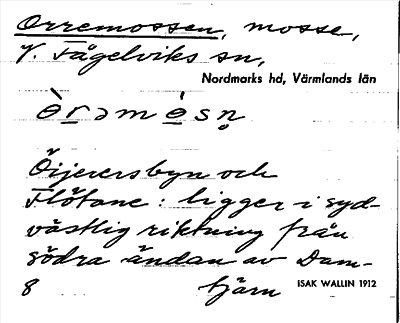 Orremossen, mosse,
V. Fågelviks sn,
Nordmarks hd, Värmlands län
och
Flötane: ligger i syd-
västlig riktning från
södra ändan av Dam-
8 tjärn ISAK WALLIN 1912